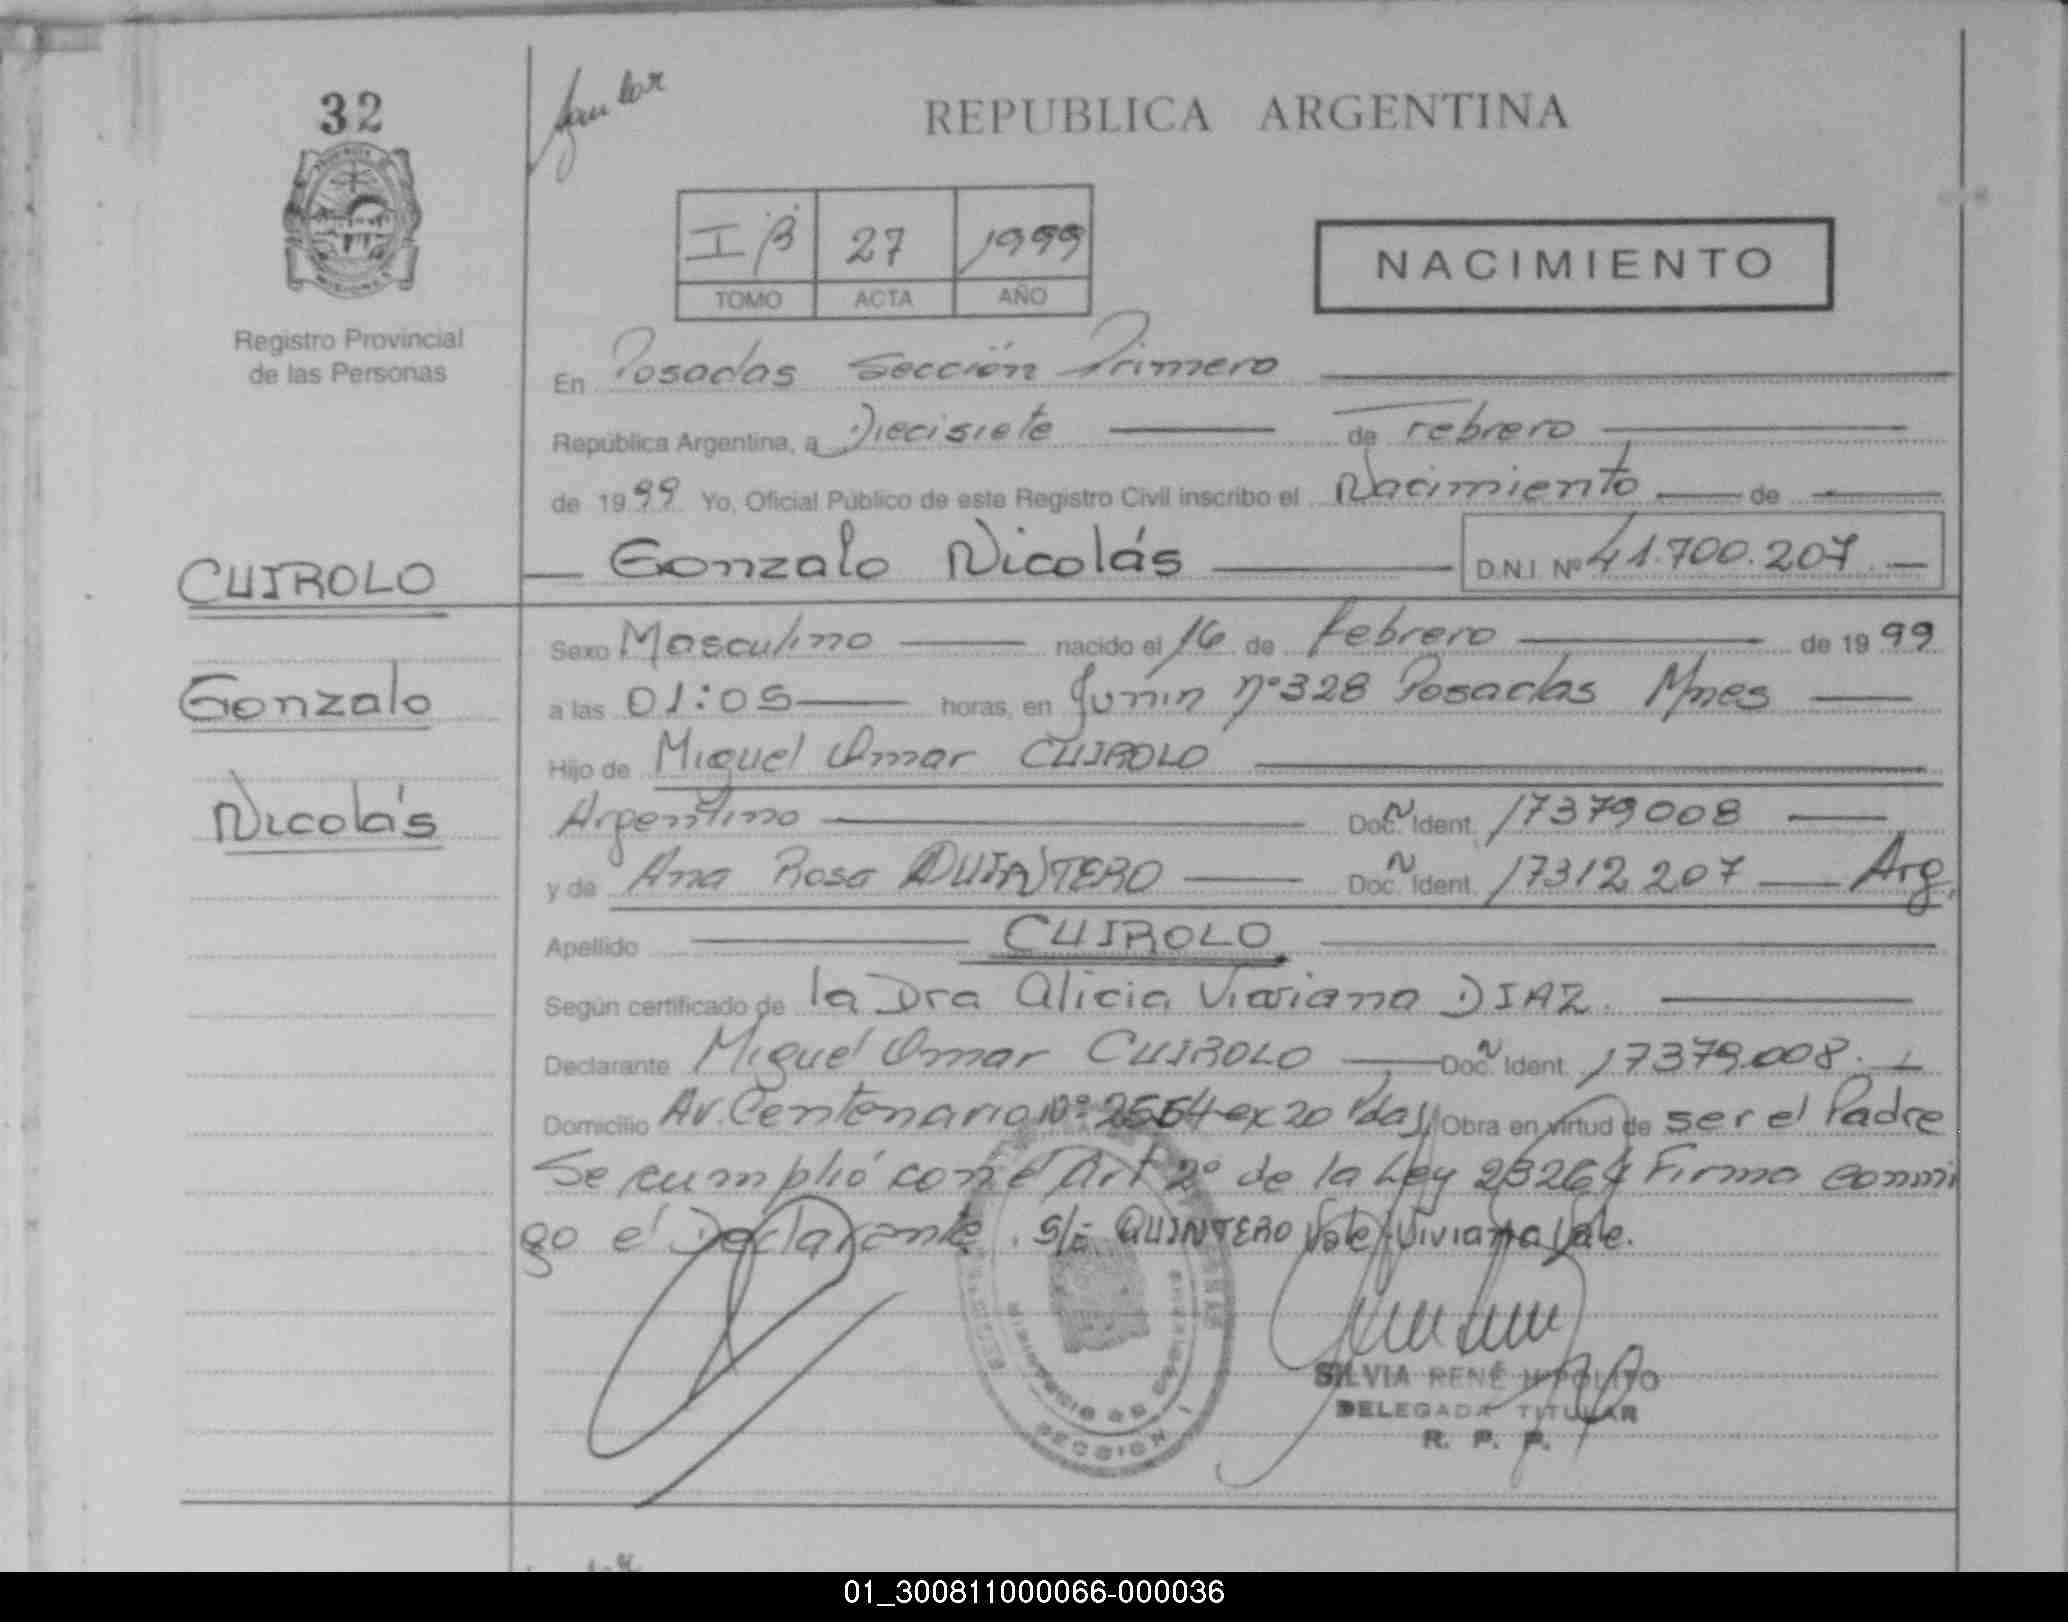 32
REPUBLICA ARGENTINA
I B 27 1999
TOMO ACTA AÑO
NACIMIENTO
Registro Provincial
de las Personas
En Posadas Sección Primera
República Argentina, a Diecisiete de Febrero
de 1999 Yo, Oficial Público de este Registro Civil inscribo el Nacimiento de
Gonzalo Nicolás D.N.I. Nº 41.700.207
CUIROLO
Gonzalo
Nicolás
Sexo Masculino nacido el 16 de Febrero de 1999
a las 01:05 horas, en Junin nº 328 Posadas Mnes
Hijo de Miguel Omar CUIROLO
Argentino Doc. Ident. 17379008
y de Ana Rosa QUINTERO Doc. Ident. 17312207 Arg.
Apellido CUIROLO
Según certificado de la Dra Alicia Viviana DIAZ.
Declarante Miguel Omar CUIROLO Doc. Ident. 17379.008.
Domicilio Av. Centenario Nº ex 20 Pdas Obra en virtud de ser el Padre
Se cumplió con el Art 2º de la Ley 23264 Firma conmi
go el Declarante. S/ QUINTERO Vale Viviana Vale.
SECCION I
SILVIA RENÉ HIPOLITO
DELEGADA TITULAR
R. P. P.
01_300811000066-000036